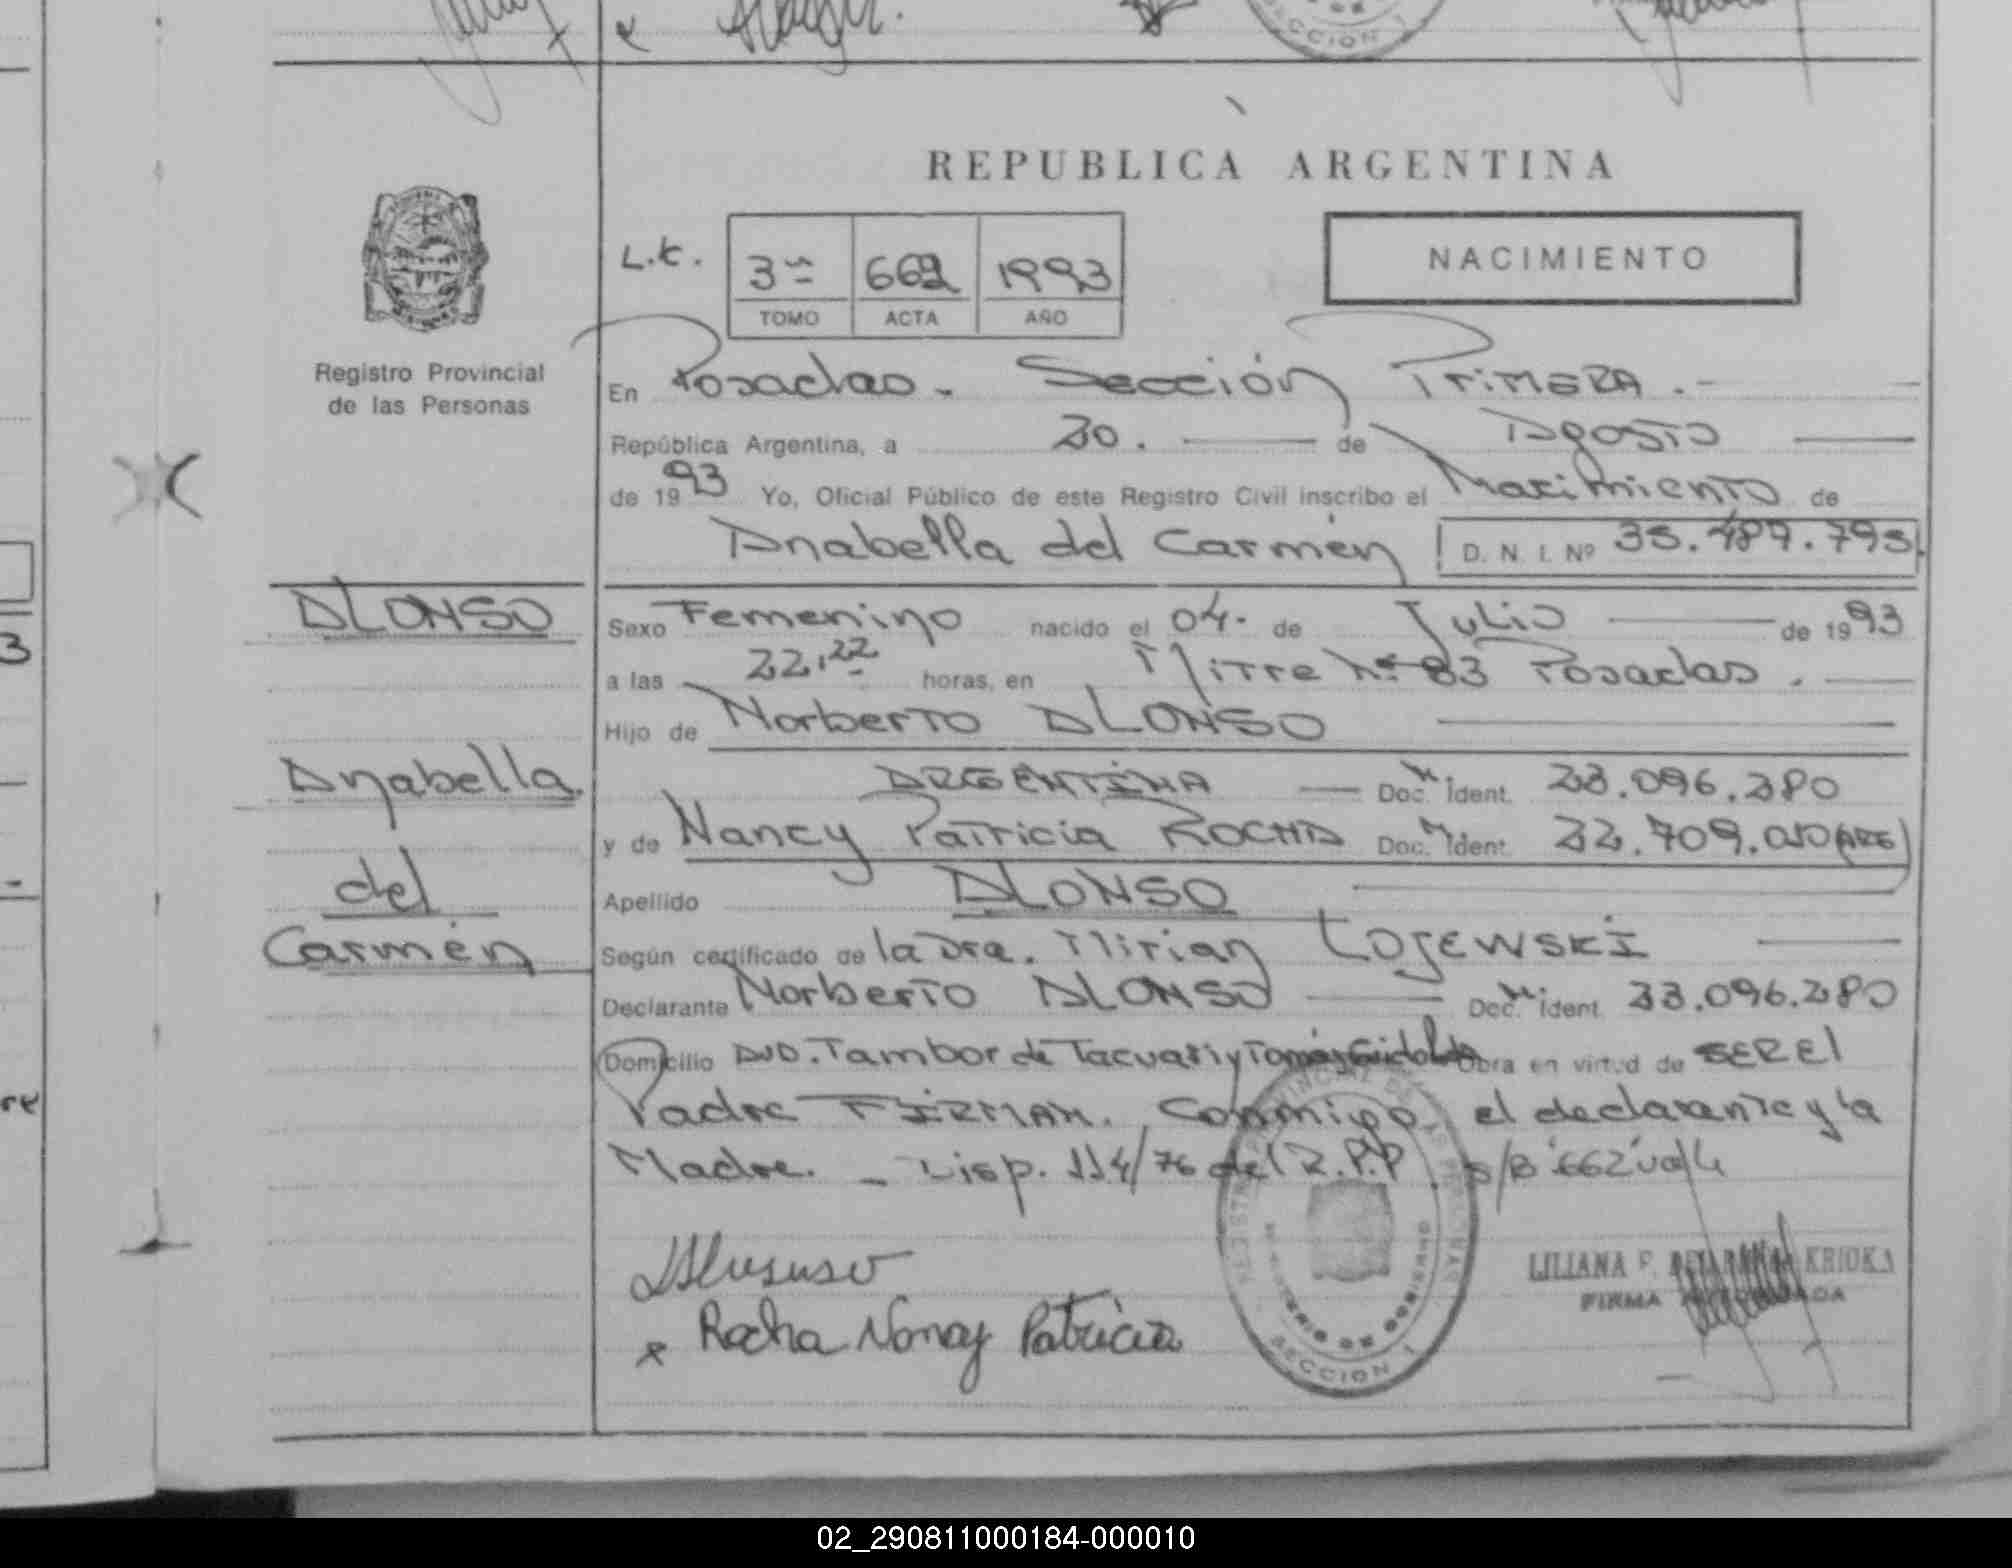 REPUBLICA ARGENTINA
NACIMIENTO
L.t. 3º 662 1993
TOMO ACTA AÑO
Registro Provincial
de las Personas
En Posadas. Sección Primera.
República Argentina, a 30. de Agosto
de 1993 Yo, Oficial Público de este Registro Civil inscribo el Nacimiento de
Anabella del Carmen D. N. I. Nº
ALONSO
Sexo Femenino nacido el 04. de Julio de 1993
a las 22,22 horas, en Mitre Nº 83 Posadas.
Hijo de Norberto ALONSO
Anabella
ARGENTINA Doc. Ident.
y de Nancy Patricia ROCHA Doc. Ident.
del
Apellido ALONSO
Carmen
Según certificado de la Dra. Mirian LOJEWSKI
Declarante Norberto ALONSO Doc. Ident.
Domicilio AVD. Tambor de Tacuari y Tomás Guido Obra en virtud de SER El
Padre FIRMAN. Conmigo, el declarante y la
Madre. Disp. 114/76 del R.P.P.
Rocha Nancy Patricia
LILIANA F. KRIOKA
FIRMA
SECCION 1
02_290811000184-000010